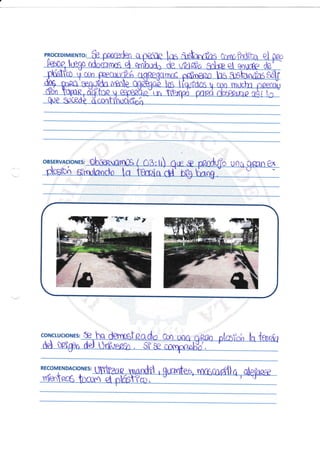 PROCEDIMIENTO: Se proceden a pesar las sustancias como indica el peo
luego colocamos el embudo de vidrio sobre el envase de
plástico y con precaución agregamos primero las sustancias sóli
das para seguida mente agregar los líquidos y con mucha precau
ción tapar, agitar y esperar un tiempo para observar así lo
que sucede a continuación
OBSERVACIONES: observamos (03:11) que se produjo una gran ex
plosión simulando la teoría del big bang.
CONCLUCIONES: Se ha demostrado con una gran plosión la teoría
del origen del Universo. Si se comprueba.
RECOMENDACIONES: Utilizar mandil, guantes, mascarilla, alejarse
mientras tocam el plástico.